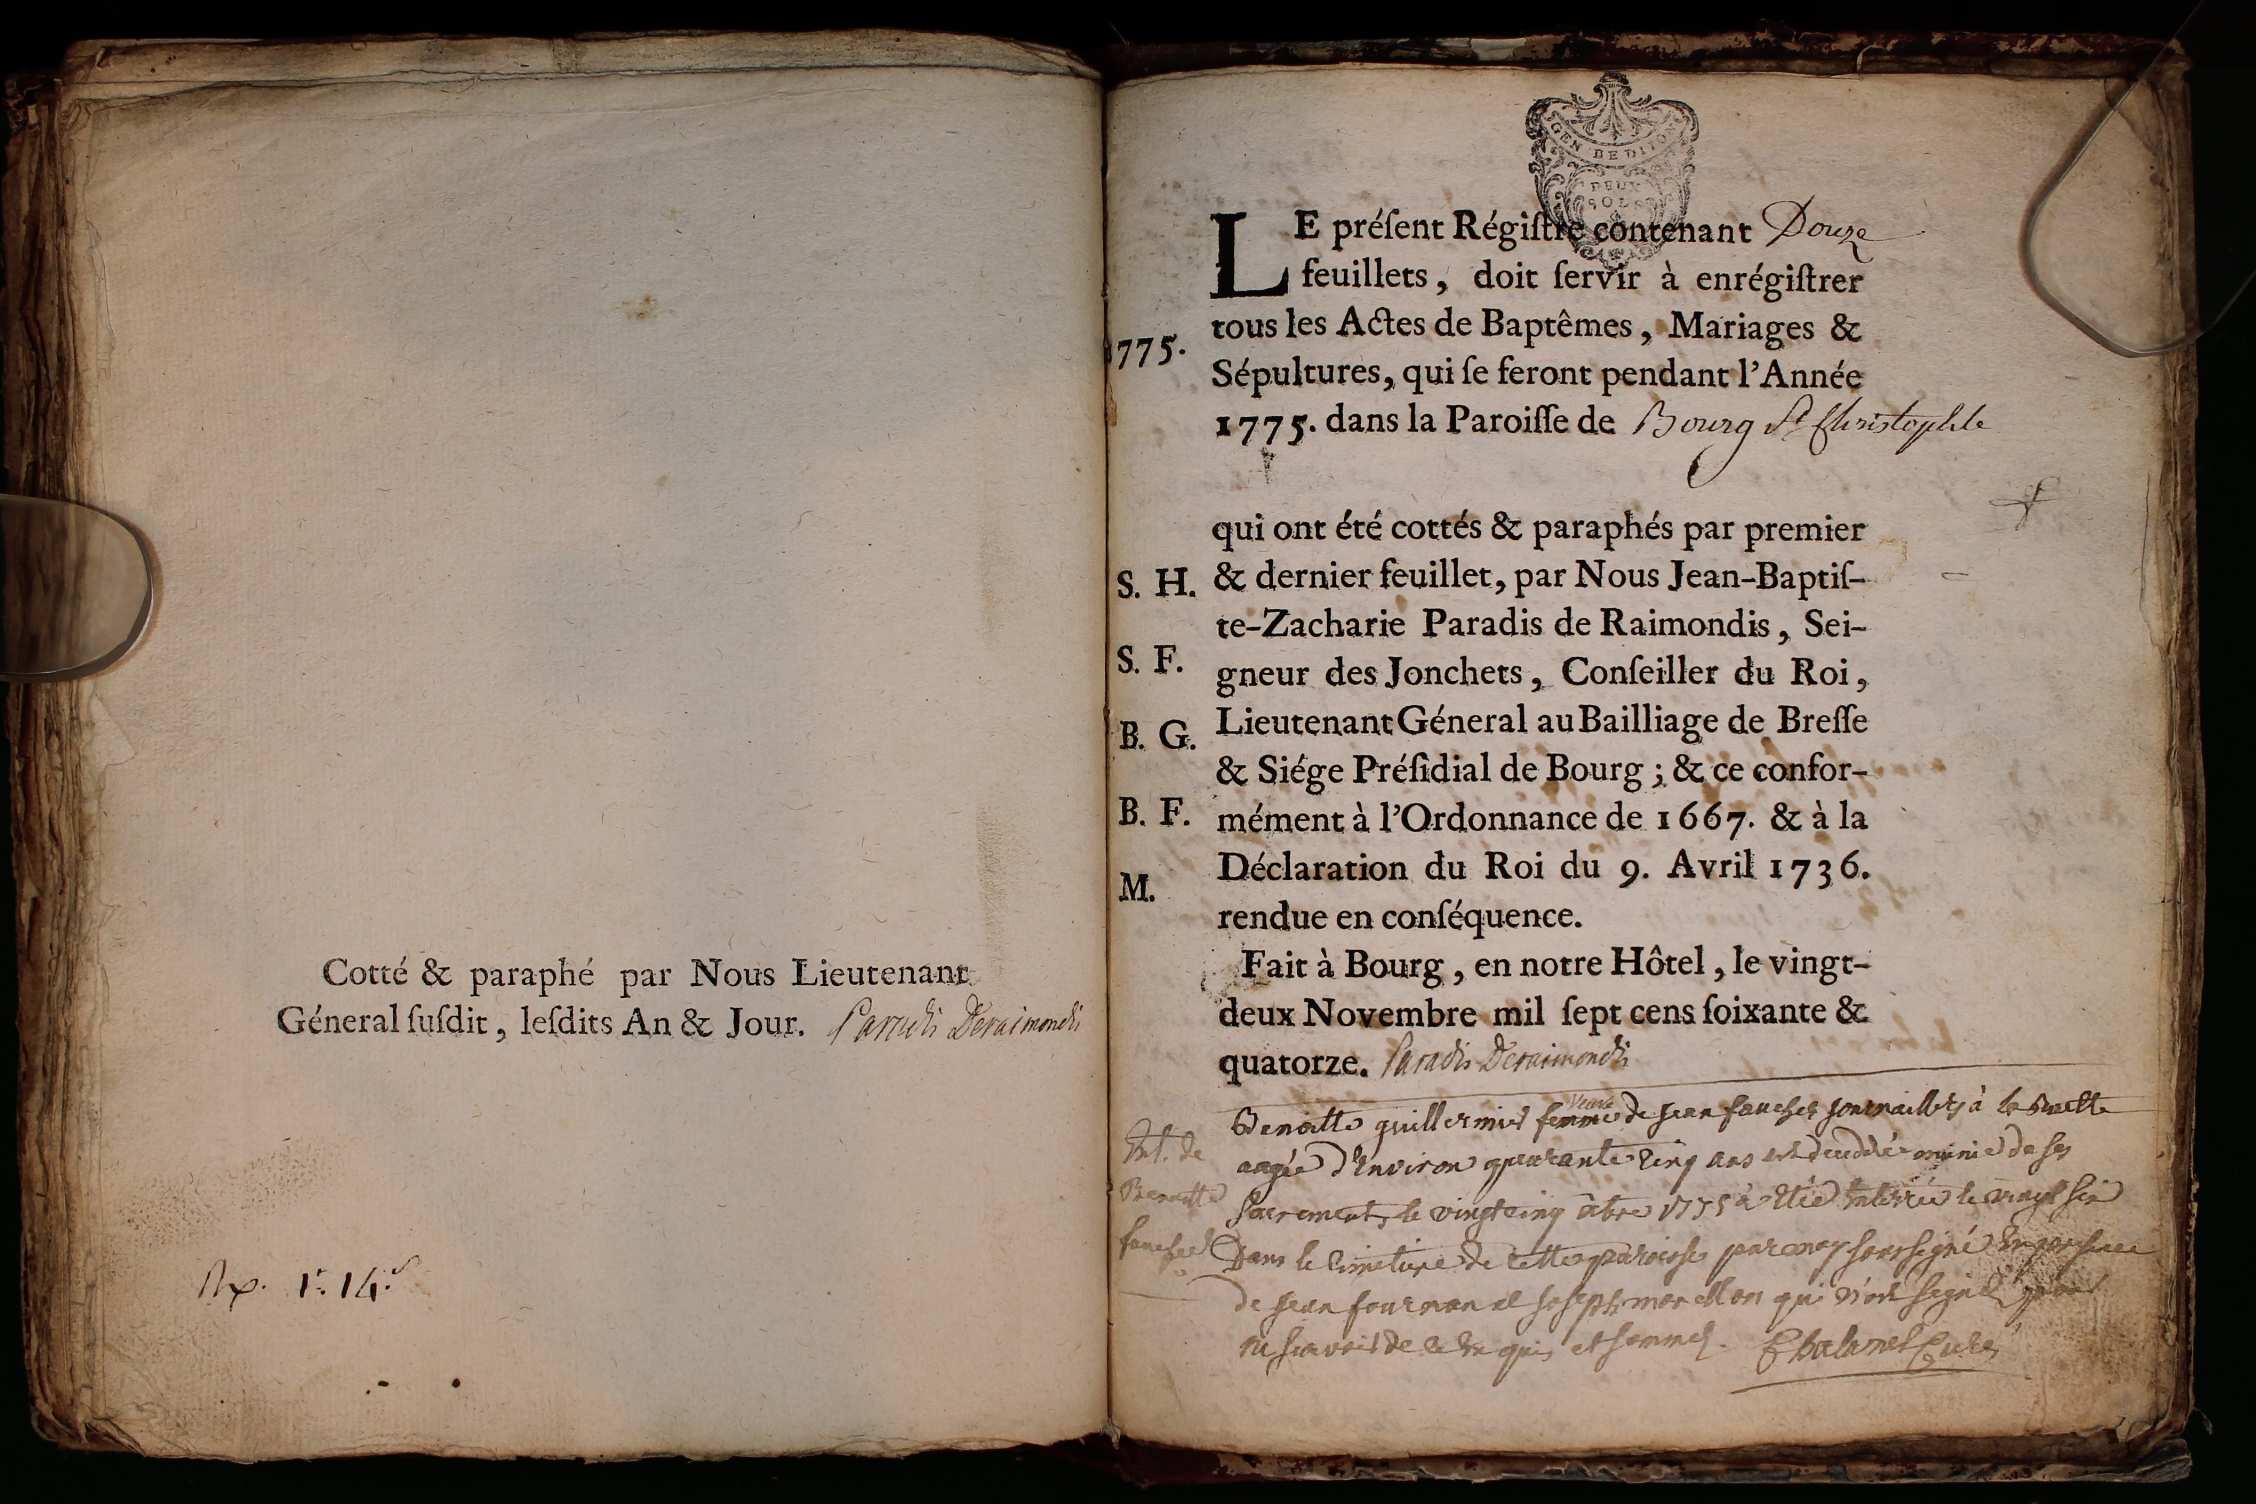 Cotté & paraphé par Nous Lieutenant
Géneral ſuſdit, leſdits An & Jour. Paradis Deraimondis
GEN BEDITION
DEUX
SOLS
LE préſent Régiſtre contenant Douze
feuillets, doit ſervir à enrégiſtrer
tous les Actes de Baptêmes, Mariages &
Sépultures, qui ſe feront pendant l'Année
1775. dans la Paroiſſe de Bourg St Chriſtophle
qui ont été cottés & paraphés par premier
& dernier feuillet, par Nous Jean-Baptiſ-
te-Zacharie Paradis de Raimondis, Sei-
gneur des Jonchets, Conſeiller du Roi,
Lieutenant Géneral au Bailliage de Breſſe
& Siége Préſidial de Bourg; & ce confor-
mément à l'Ordonnance de 1667. & à la
Déclaration du Roi du 9. Avril 1736.
rendue en conſéquence.
Fait à Bourg, en notre Hôtel, le vingt-
deux Novembre mil ſept cens ſoixante &
quatorze. Paradis Deraimondis
775.
S. H.
S. F.
B. G.
B. F.
M.
Ent. de
Benoitte
veuve
Benoitte guillermin femme de jean faucher journallier à la
aagée d'environ quarante cinq ans est decedée munie de ses
sacrements le vingt cinq 1775 a etée enterrée le vingt six
Dans le cimetiere de cette paroisse par moy soussigné en presence
de jean fournon et joseph morellon qui n'ont signé pour
ne scavoir de ce enquis et sommés. Chalamel Curé